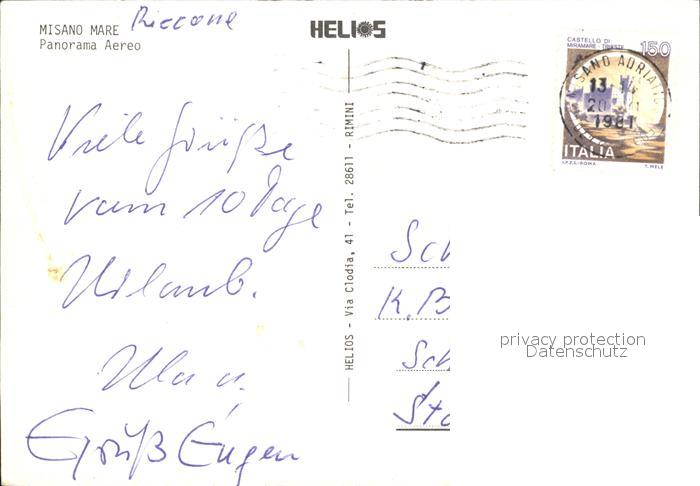 MISANO MARE Riccone
Panorama Aereo
HELIOS
CASTELLO DI
MIRAMARE - TRIESTE
150
SANO ADRIATI
13
20
1981
ITALIA
I.P.Z.S. - ROMA
T. MELE
Viele Grüße
vom 10 Tage
Urlaub.
Ula u.
Grüß Eugen
HELIOS - Via Clodia, 41 - Tel. 28611 - RIMINI
Sch
K.B
Sch
privacy protection
Datenschutz